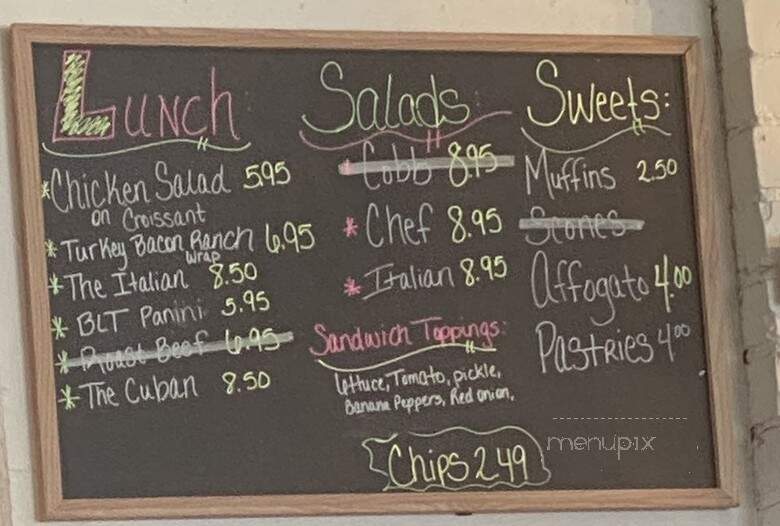 Lunch
*Chicken Salad 5.95
on Croissant
*Turkey Bacon Ranch 6.95
wrap
*The Italian 8.50
*BLT Panini 5.95
*Roast Beef 6.95
*The Cuban 8.50
Salads:
*Cobb 8.95
*Chef 8.95
*Italian 8.95
Sandwich Toppings:
lettuce, Tomato, pickle,
Banana Peppers, Red onion,
Chips 2.49
Sweets:
Muffins 2.50
Scones
Affogato 4.00
Pastries 4.00
menupix